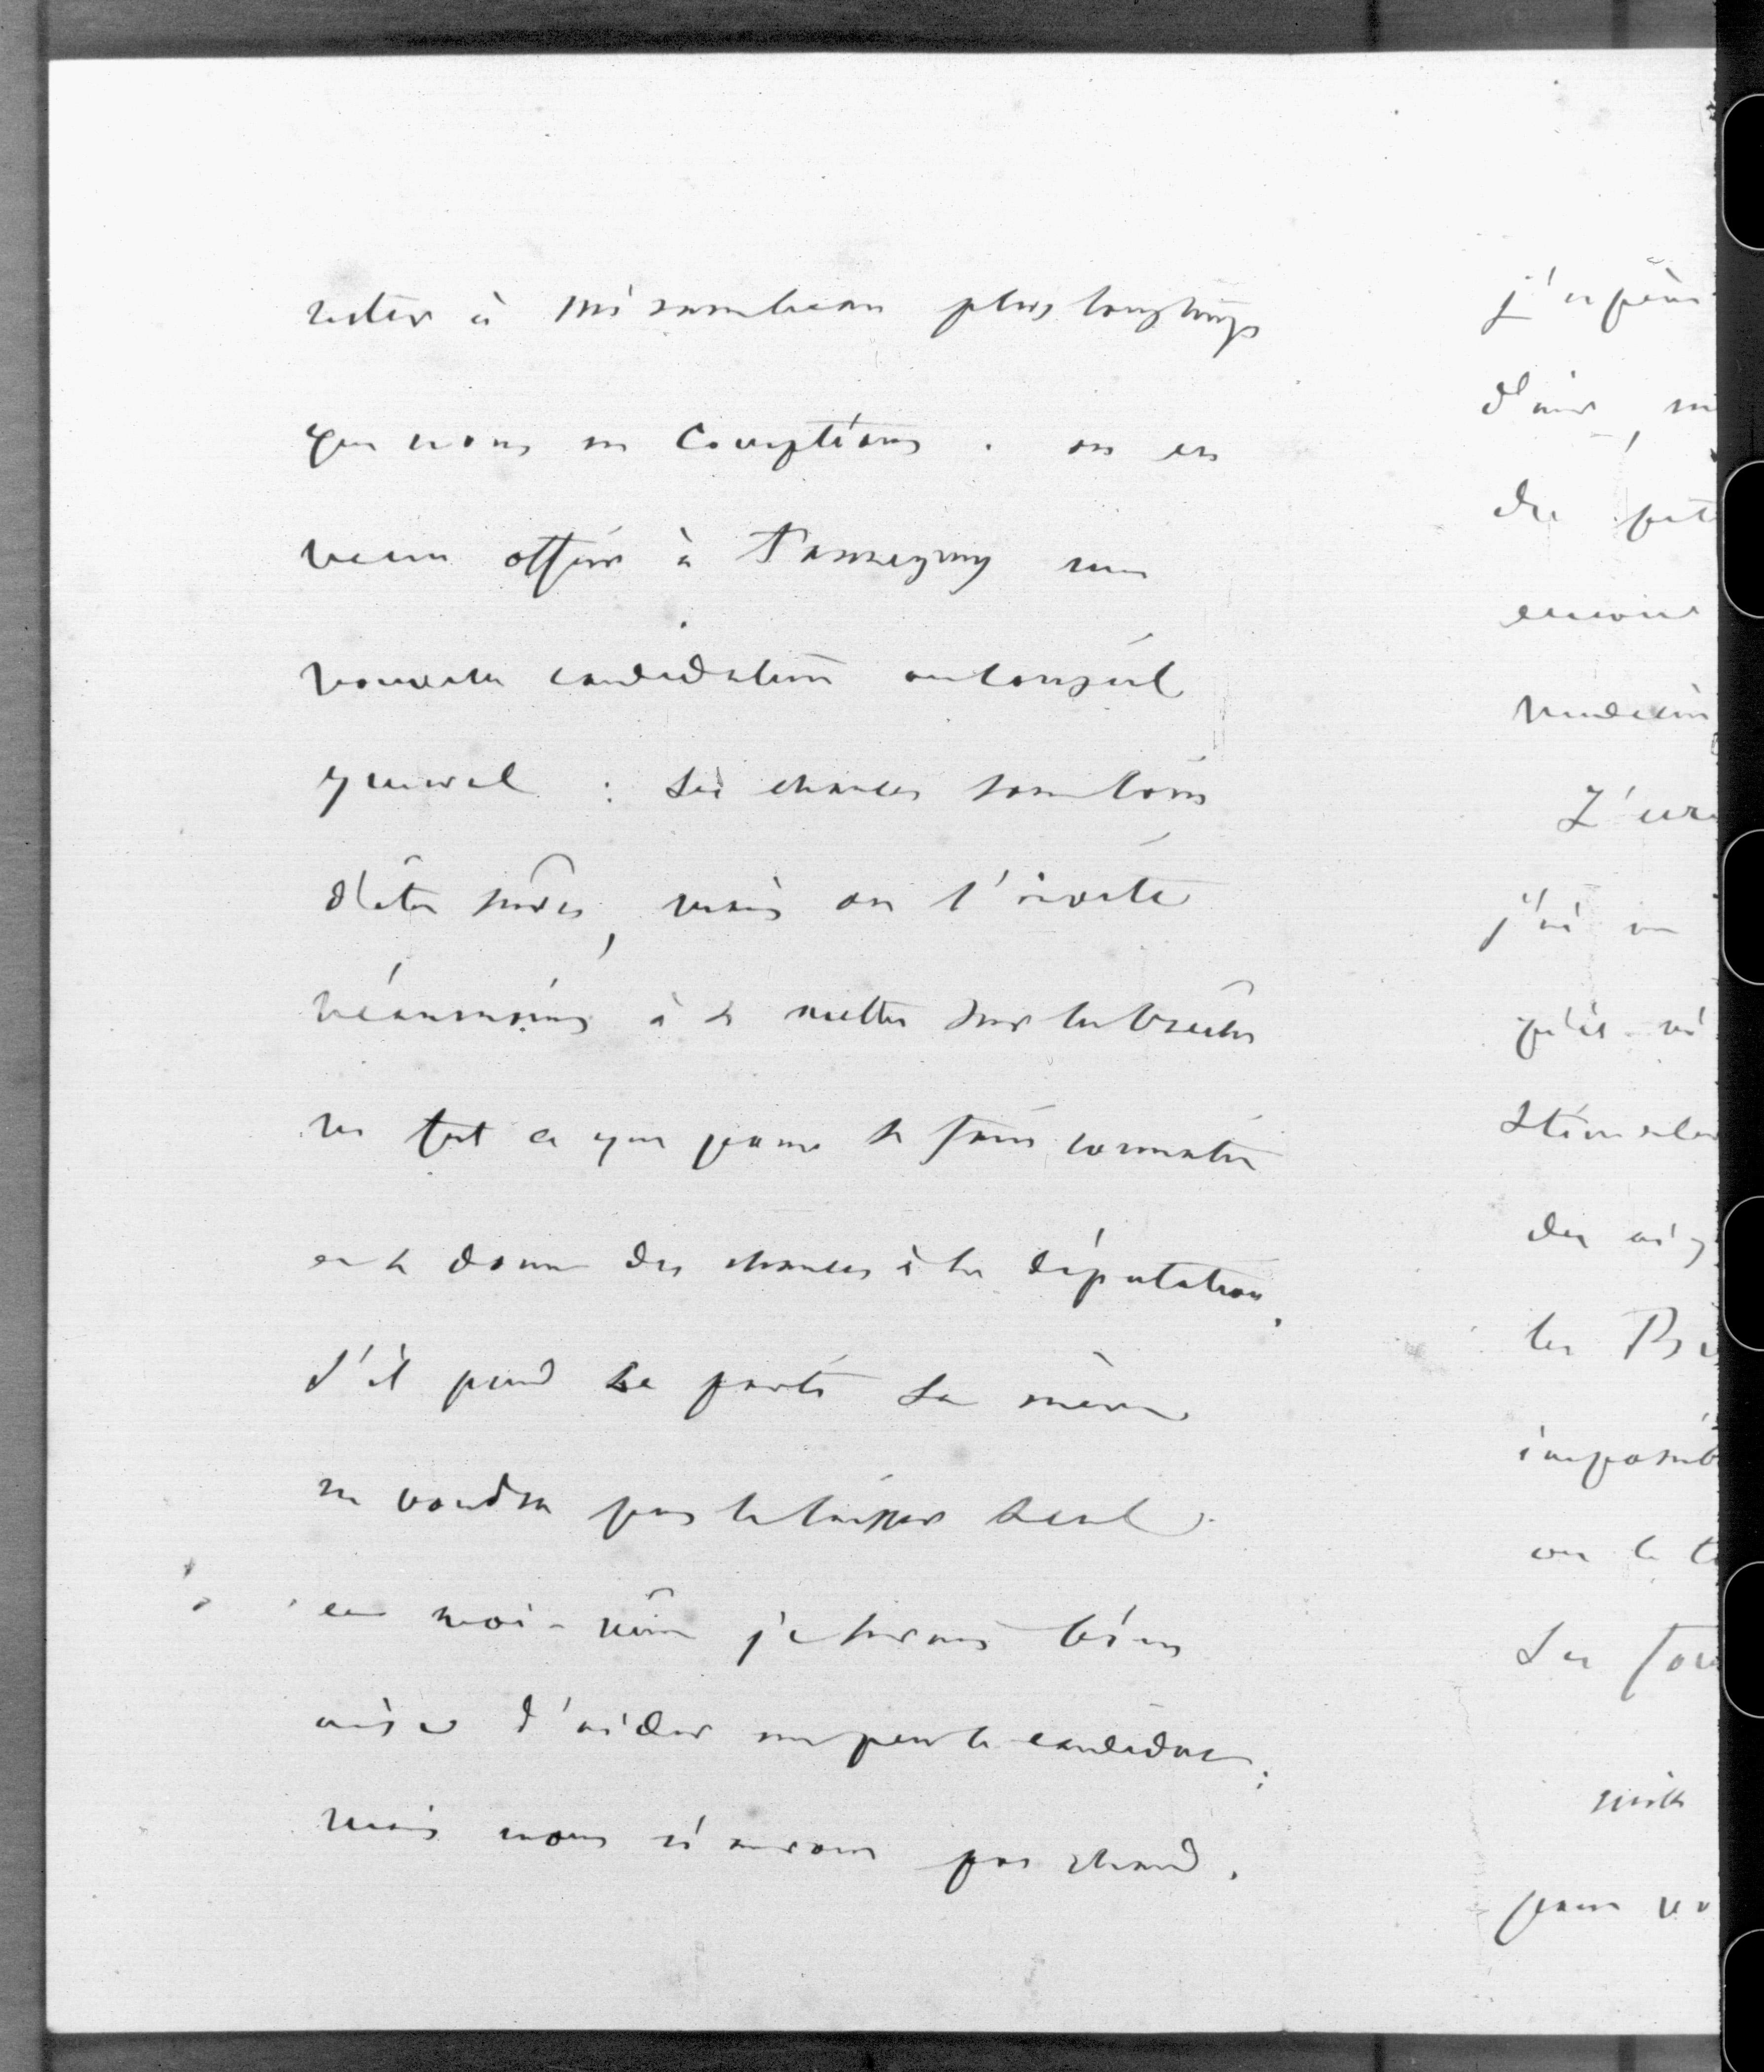 rester à Mirambeau plus longtemps
que nous ne comptions . on est
venu offrir à Tanneguy une
nouvelle candidature au conseil
general : Les chances sont loin
d'être sûres, mais on l'invite
néanmoins à se mettre sur la brèche
ne fut ce que pour se faire connaître
et se donner des chances à la députation.
s'il prend ce parti sa mère
ne voudra pas le laisser seul.
et moi-même je serais bien
aise d'aider un peu le candidat ;
mais nous n'aurons pas chaud.
j'espère
d'ai
des
encore
j'ai un
qu'il
Stimuler
des
les
impossib
ou le
Ses
mille
pour vo